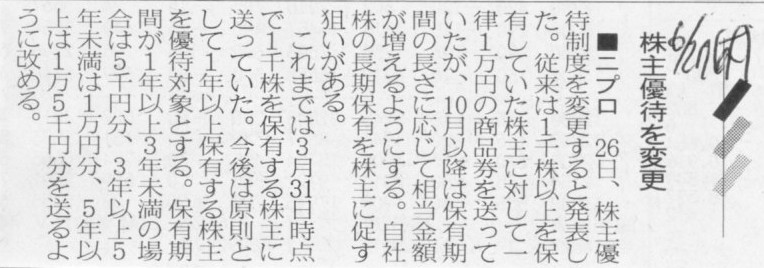 6/27(木)
株主優待を変更
■ニプロ　26日、株主優
待制度を変更すると発表し
た。従来は1千株以上を保
有していた株主に対して一
律1万円の商品券を送って
いたが、10月以降は保有期
間の長さに応じて相当金額
が増えるようにする。自社
株の長期保有を株主に促す
狙いがある。
　これまでは3月31日時点
で1千株を保有する株主に
送っていた。今後は原則と
して1年以上保有する株主
を優待対象とする。保有期
間が1年以上3年未満の場
合は5千円分、3年以上5
年未満は1万円分、5年以
上は1万5千円分を送るよ
うに改める。